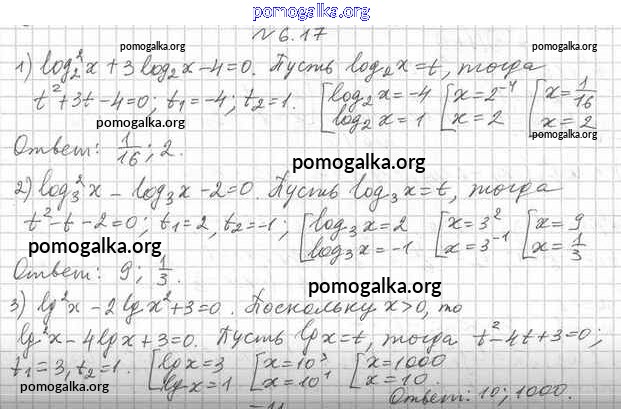 pomogalka.org
№6.17
pomogalka.org pomogalka.org
1) log₂²x + 3log₂x - 4 = 0. Пусть log₂x = t, тогда
t² + 3t - 4 = 0; t₁ = -4; t₂ = 1. [log₂x = -4 [x = 2⁻⁴ [x = 1/16
log₂x = 1 x = 2 x = 2
pomogalka.org pomogalka.org
Ответ: 1/16; 2.
pomogalka.org
2) log₃²x - log₃x - 2 = 0. Пусть log₃x = t, тогда
t² - t - 2 = 0; t₁ = 2, t₂ = -1; [log₃x = 2 [x = 3² [x = 9
log₃x = -1 x = 3⁻¹ x = 1/3
pomogalka.org
Ответ: 9; 1/3.
pomogalka.org
3) lg²x - 2lgx² + 3 = 0. Поскольку x > 0, то
lg²x - 4lgx + 3 = 0. Пусть lgx = t, тогда t² - 4t + 3 = 0;
pomogalka.org
t₁ = 3, t₂ = 1. [lgx = 3 [x = 10³ [x = 1000
lgx = 1 x = 10¹ x = 10.
pomogalka.org
Ответ: 10; 1000.